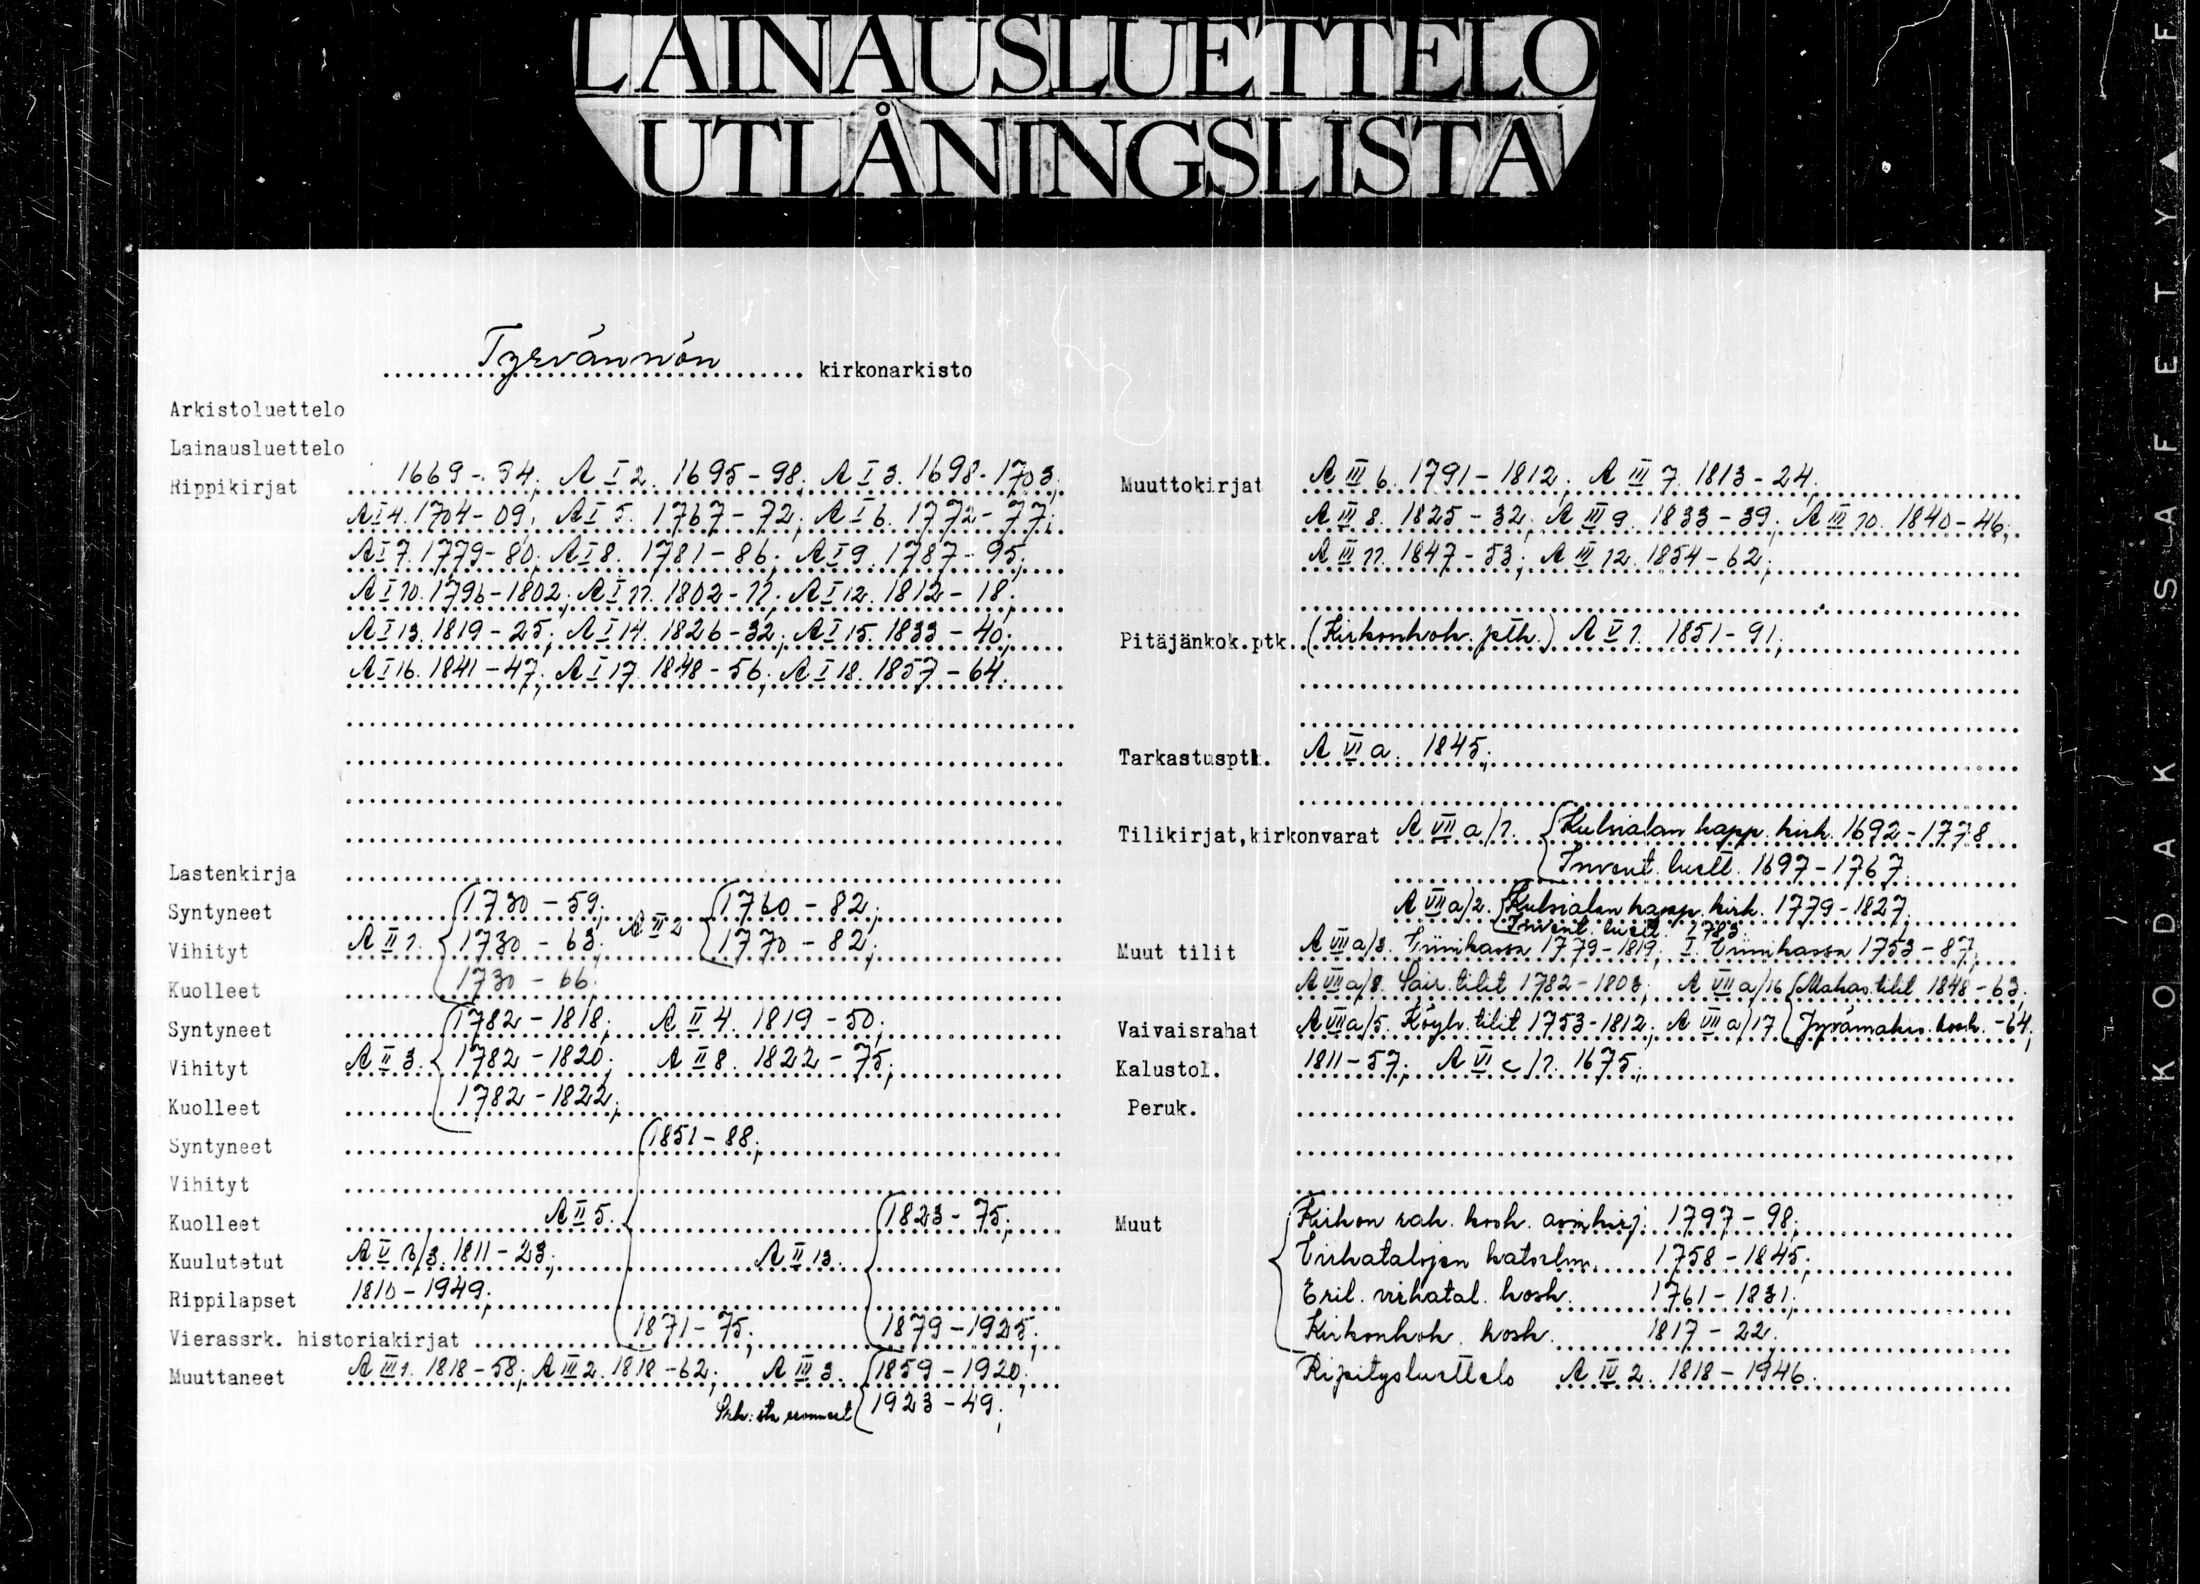 LAINAUSLUETTELO
UTLÅNINGSLISTA
Tyrvännön kirkonarkisto
Arkistoluettelo
Lainausluettelo
Rippikirjat 1669-94; A I 2. 1695-98; A I 3. 1698-1703;
A I 4. 1704-09; A I 5. 1767-72; A I 6. 1772-77;
A I 7. 1779-80; A I 8. 1781-86; A I 9. 1787-95;
A I 10. 1796-1802; A I 11. 1802-11; A I 12. 1812-18;
A I 13. 1819-25; A I 14. 1826-32; A I 15. 1833-40;
A I 16. 1841-47; A I 17. 1848-56; A I 18. 1857-64.
Lastenkirja
Syntyneet 1730-59; 1760-82;
Vihityt A II 1. 1730-63; A II 2 1770-82;
Kuolleet 1730-66;
Syntyneet 1782-1818; A II 4. 1819-50;
Vihityt A II 3. 1782-1820; A II 8. 1822-75;
Kuolleet 1782-1822;
Syntyneet 1851-88;
Vihityt
Kuolleet A II 5. 1823-75;
Kuulutetut A V B/3. 1811-23; A II 13.
Rippilapset 1810-1949;
Vierassrk. historiakirjat 1871-75; 1879-1925;
Muuttaneet A III 1. 1818-58; A III 2. 1818-62; A III 3. 1859-1920;
Srk:sta eronneet 1923-49;
Muuttokirjat A III 6. 1791-1812; A III 7. 1813-24;
A III 8. 1825-32; A III 9. 1833-39; A III 10. 1840-46;
A III 11. 1847-53; A III 12. 1854-62;
Pitäjänkok.ptk. (Kirkonkok. ptk.) A V 1. 1851-91;
Tarkastusptk. A VI a. 1845;
Tilikirjat,kirkonvarat A VII a/1. Kulsialan kapp. kirk. 1692-1778
Invent. luett. 1697-1767
A VII a/2. Kulsialan kapp. kirk. 1779-1827;
Invent. luett. 1783.
Muut tilit A VII a/3. Viinikassa 1779-1819; I. Viinikassa 1753-87;
A VII a/8. Sair. tilit 1782-1803; A VII a/16 Makas. tilit 1848-63;
Vaivaisrahat A VII a/5. Köyh. tilit 1753-1812; A VII a/17 Jyvämakas. kosk. -64;
Kalustol. 1811-57; A VI c/1. 1675;
Peruk.
Muut Kirkon rak. kosk. asiakirj. 1797-98;
Virkatalojen katselm. 1758-1845;
Eril. virkatal. kosk. 1761-1831;
Kirkonkok. kosk. 1817-22;
Ripitysluettelo A IV 2. 1818-1946.
KODAK·SLAFETY▲F